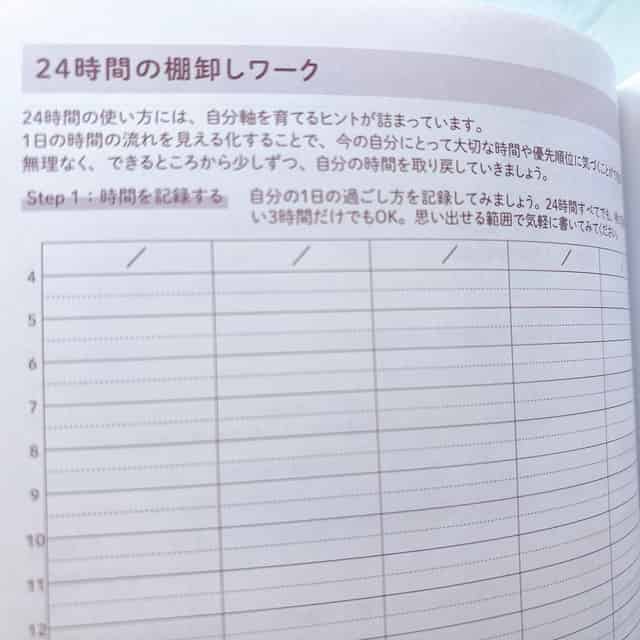 24時間の棚卸しワーク
24時間の使い方には、自分軸を育てるヒントが詰まっています。
1日の時間の流れを見える化することで、今の自分にとって大切な時間や優先順位に気づくことが
無理なく、できるところから少しずつ、自分の時間を取り戻していきましょう。
Step 1：時間を記録する
自分の1日の過ごし方を記録してみましょう。24時間すべてでも、
い3時間だけでもOK。思い出せる範囲で気軽に書いてみてください。
/ / / /
4
5
6
7
8
9
10
11
12